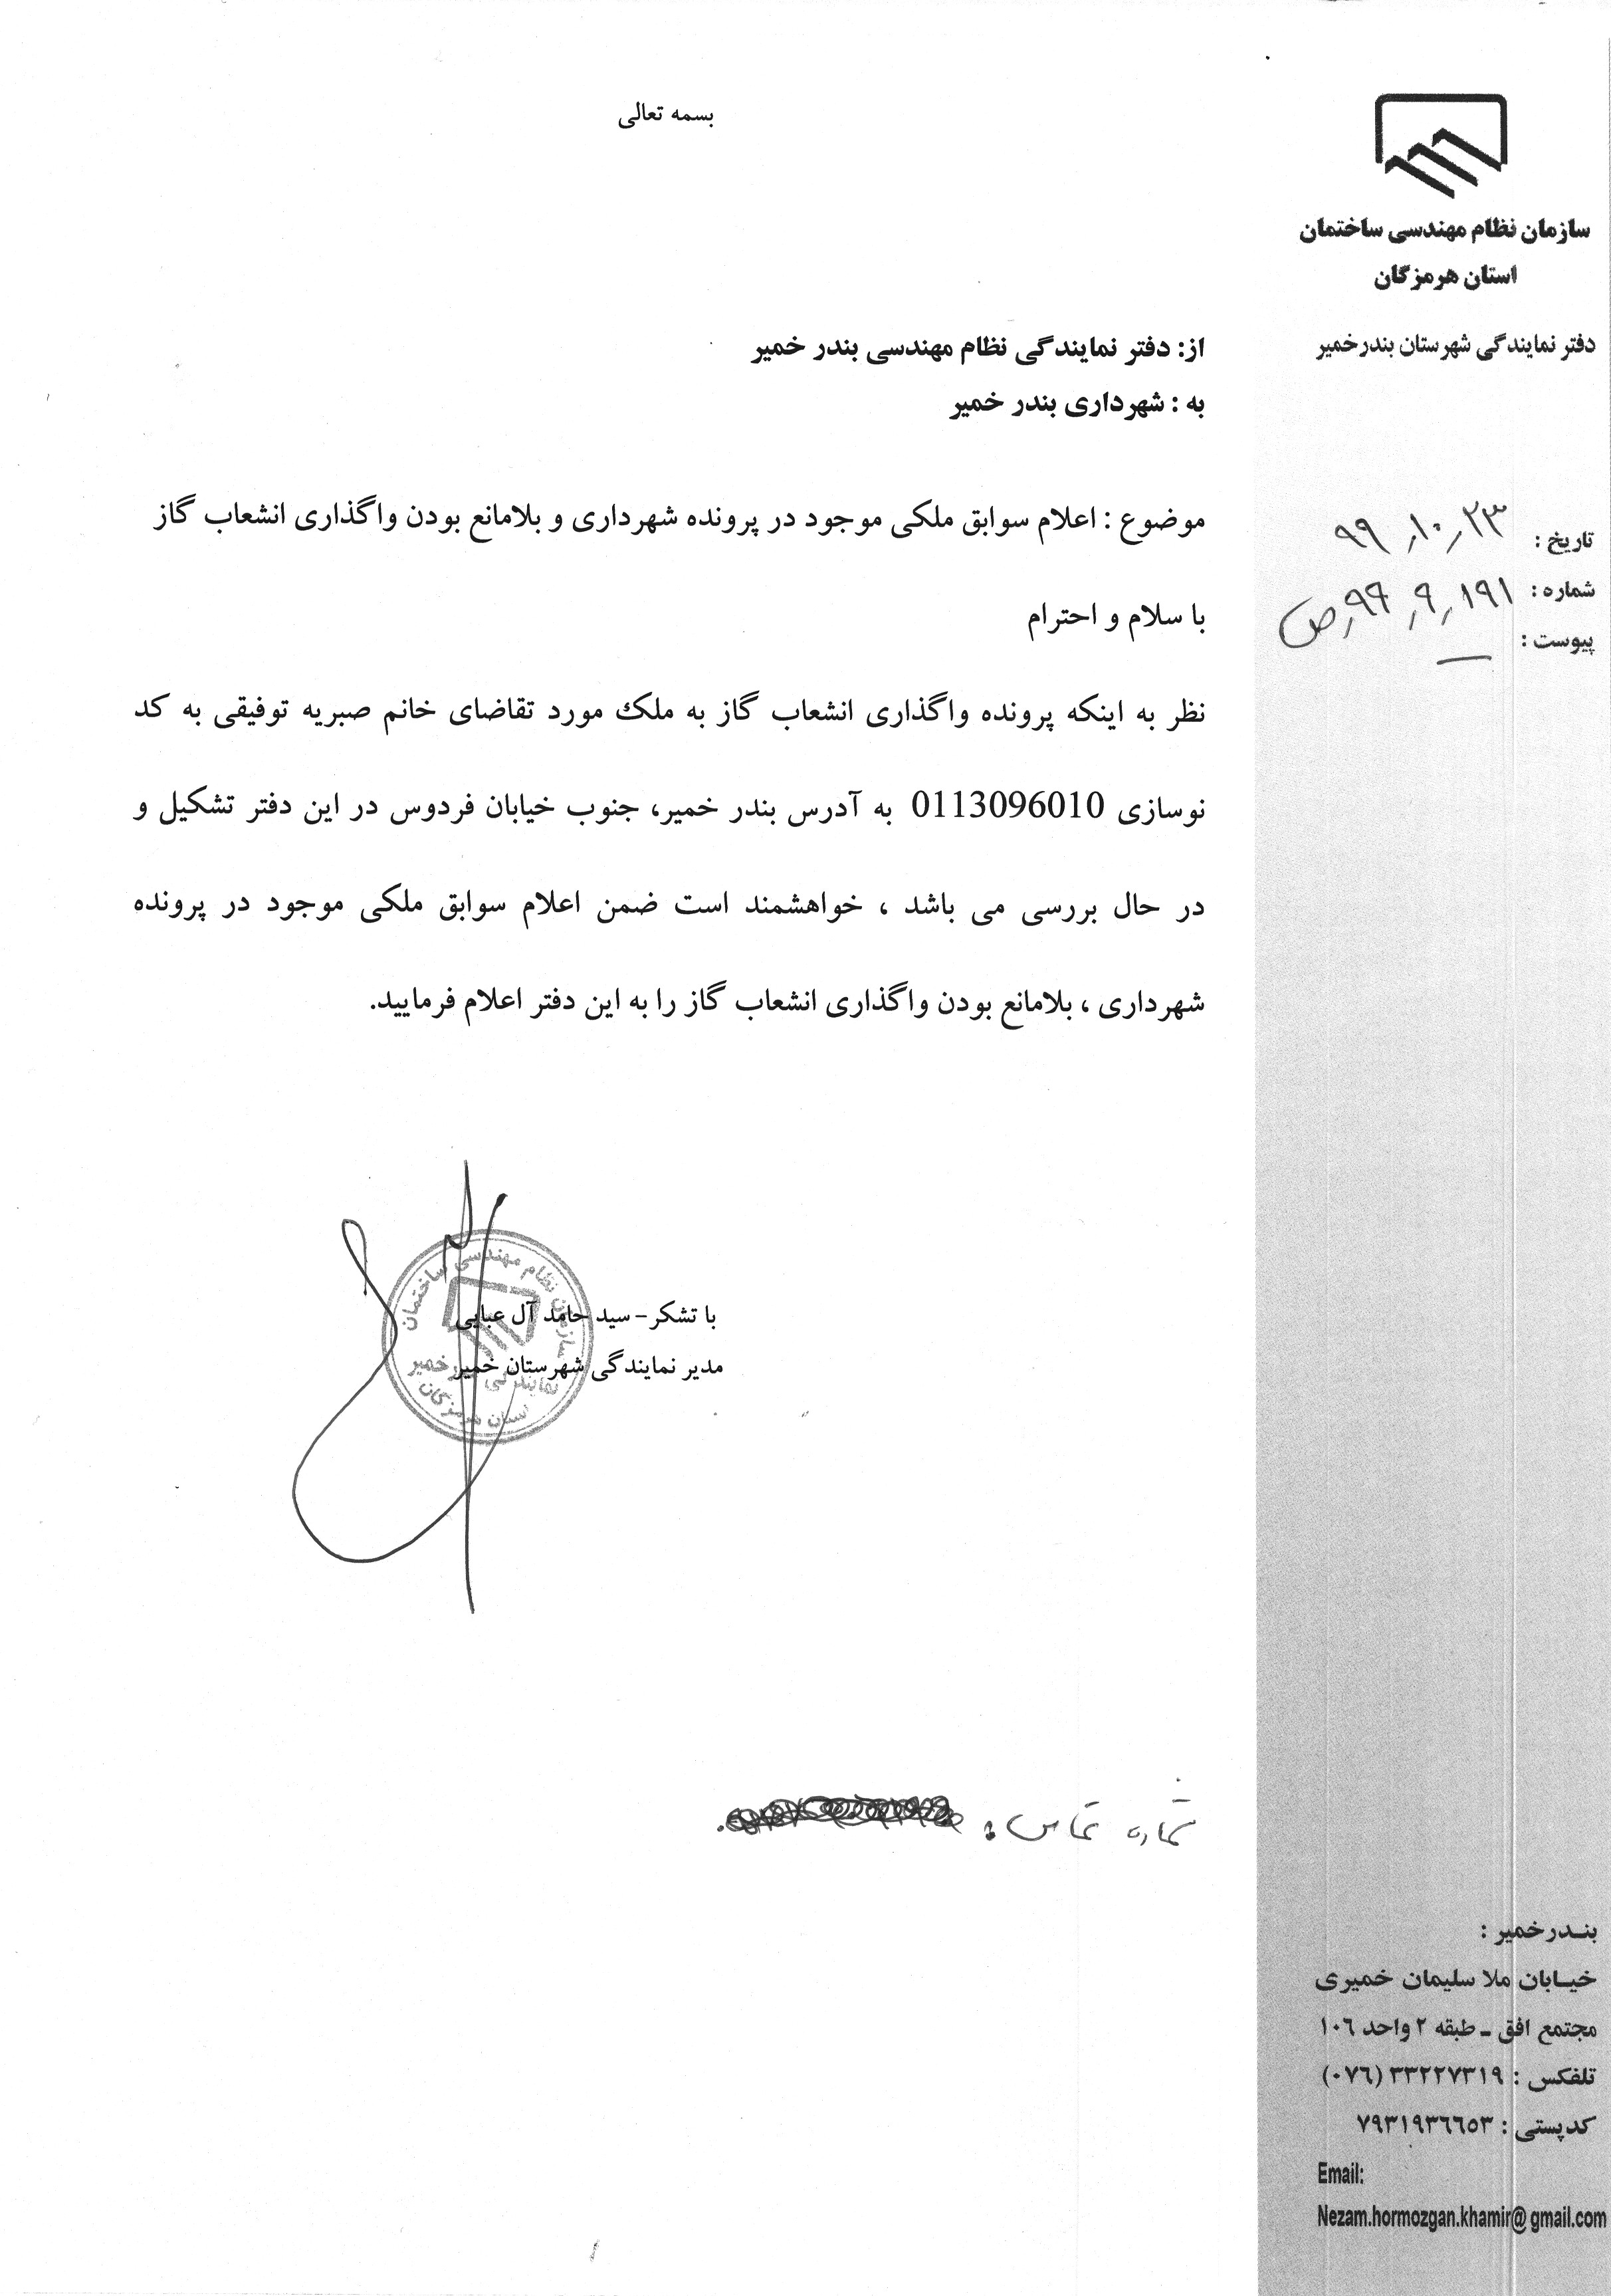 بسمه تعالی
سازمان نظام مهندسی ساختمان
استان هرمزگان
دفتر نمایندگی شهرستان بندرخمیر
تاریخ : ۹۹٫۱۰٫۲۳
شماره : ۱۹۱٫۹٫۹۹٫ص
پیوست : —
از: دفتر نمایندگی نظام مهندسی بندر خمیر
به : شهرداری بندر خمیر
موضوع : اعلام سوابق ملکی موجود در پرونده شهرداری و بلامانع بودن واگذاری انشعاب گاز
با سلام و احترام
نظر به اینکه پرونده واگذاری انشعاب گاز به ملک مورد تقاضای خانم صبریه توفیقی به کد
نوسازی 0113096010 به آدرس بندر خمیر، جنوب خیابان فردوس در این دفتر تشکیل و
در حال بررسی می باشد ، خواهشمند است ضمن اعلام سوابق ملکی موجود در پرونده
شهرداری ، بلامانع بودن واگذاری انشعاب گاز را به این دفتر اعلام فرمایید.
با تشکر – سید حامد آل عبایی
مدیر نمایندگی شهرستان خمیر
سازمان نظام مهندسی ساختمان
نمایندگی بندر خمیر
استان هرمزگان
شماره تماس :
بندرخمیر :
خیابان ملا سلیمان خمیری
مجتمع افق ـ طبقه ۲ واحد ۱۰۶
تلفکس : ۳۳۲۲۷۳۱۹ (۰۷۶)
کدپستی : ۷۹۳۱۹۳۶۶۵۳
Email:
Nezam.hormozgan.khamir@gmail.com